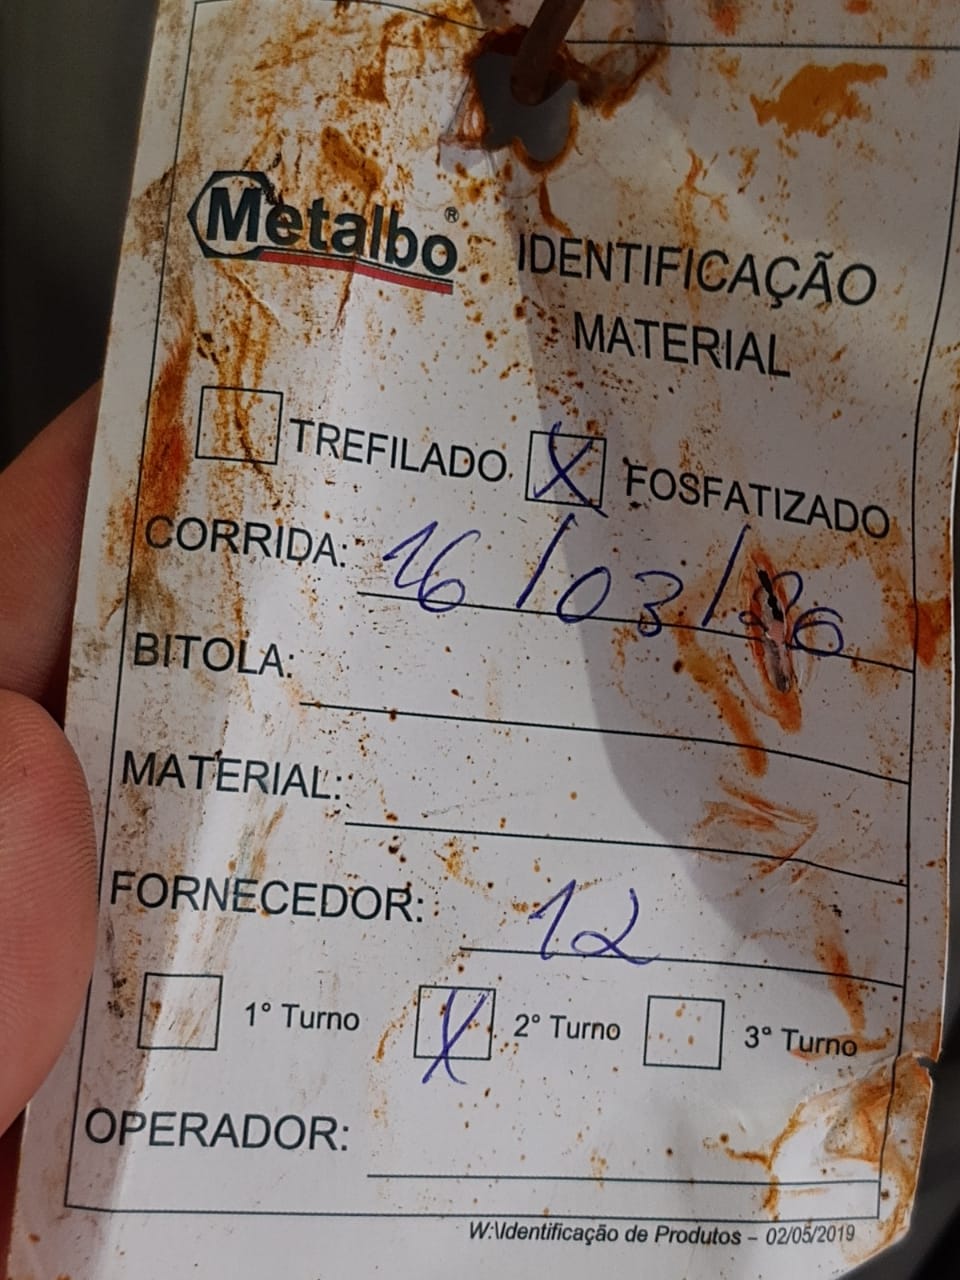 Metalbo®
IDENTIFICAÇÃO
MATERIAL
TREFILADO X FOSFATIZADO
CORRIDA: 16/03/20
BITOLA:
MATERIAL:
FORNECEDOR: 12
1° Turno X 2° Turno 3° Turno
OPERADOR:
W:\Identificação de Produtos – 02/05/2019